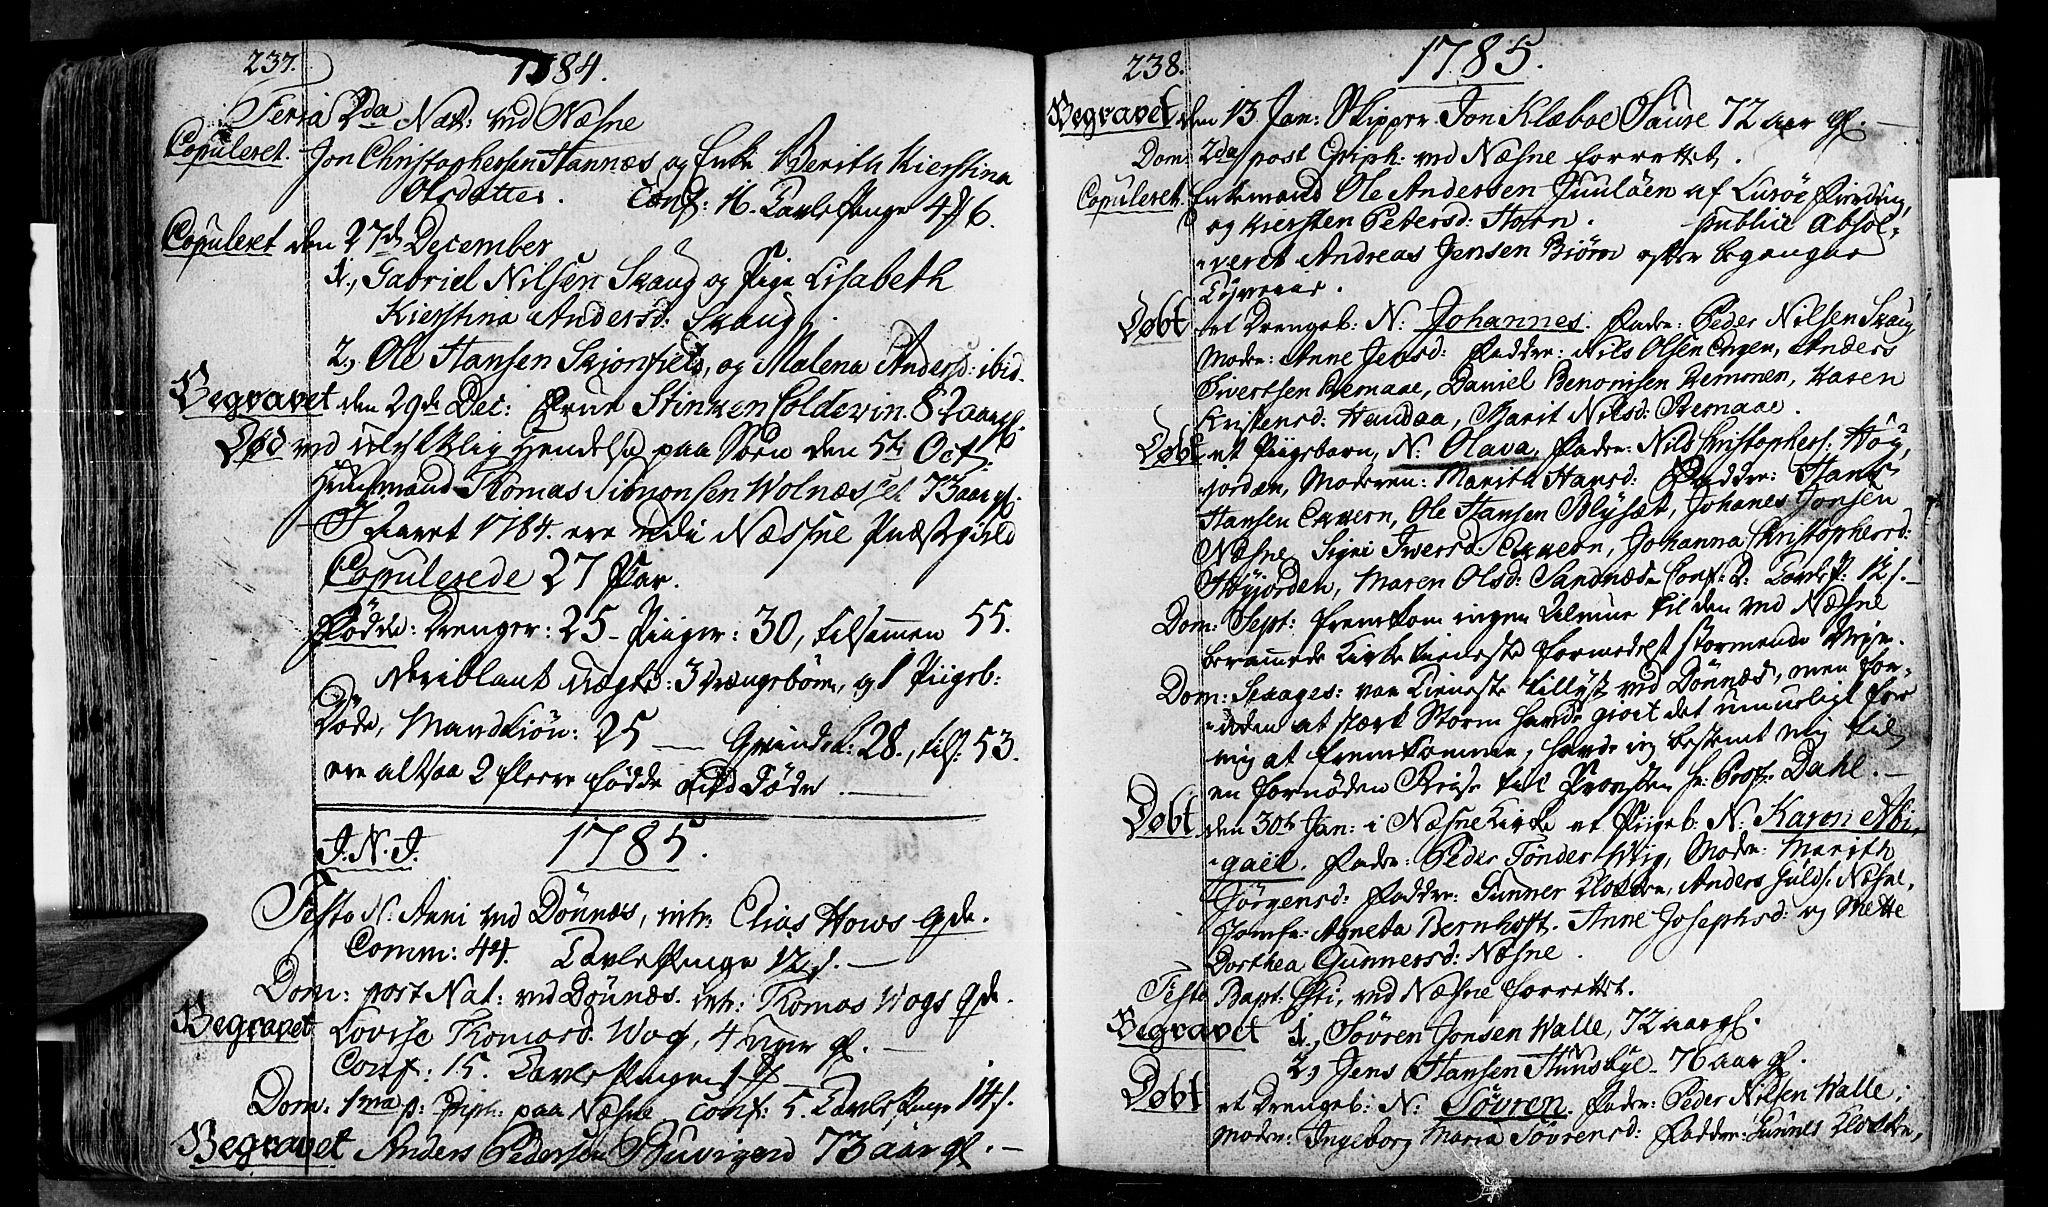 237. 1784.
Feria 2da Nat: ved Næsne
Copuleret. Jon Christophersen Hannæs og Enke Berith Kierstina
Olsdatter. Conf: 16. Tavle Penge 4 f 6.
Copuleret den 27de December
1, Gabriel Nilsen Skaug og Pige Lisabeth
Kierstina Andersd: Skaug
2, Ole Hansen Skjonfield, og Malena Andersd: ibid.
Begravet den 29de Dec: Frue Stinken Coldevin. 82 aar gl.
Død ved ulyklig Hendelse paa Søen den 5te Oct:
Huusmand Thomas Simonsen Wolnæs 73 aar gl.
I Aaret 1784. ere udi Næsne Præstegield
Copulerede 27 Par.
Fødde: Drenger: 25 - Piiger: 30, tilsammen 55.
deriblant uægte: 3 drængebørn, og 1 Piigeb:
Døde, Mandkiøn: 25 — Qvindek: 28., tils: 53.
ere altsaa 2 fleere fødde end Døde. —
J. N. J. 1785.
Festo N: Anni ved Dønnæs, intr: Elias Hows qde.
Comm: 44. Tavle Penge 12 s. —
Dom: post Nat: ved Dønnæs. intr: Thomas Wogs qde.
Begravet Lovise Thomasd. Wog, 4 Uger gl. —
Conf: 15. Tavle Penge
Dom: 1ma p: Epiph: paa Næsne conf: 5. Tavle Penge 14 s.
Begravet Anders Pedersen 73 aar gl. —
238. 1785.
Begravet den 13 Jan: Skipper Jon Klæboe Saure 72 aar gl. —
Dom: 2da post Epiph: ved Næsne forrettet.
Copuleret. Enkemand Ole Andersen Juuløen af Lurøe Fierding,
og Kiersten Petersd: Horn. publice Absol-
veret Andreas Jensen Biørn efter begangne
Tyverie.
Døbt et Drengeb: N: Johannes. Fader: Peder Nilsen Skaug
Moder: Anne Jensd: Faddre: Nils Olsen Engen, Anders
Ivertsen Remaae, Daniel Benonisen Remmen, Karen
Kristensd: Handaa, Marit Nilsd: Remaae.
Døbt et Piigebarn, N: Olava, Fader: Nils Christophers: Høy-
jorden, Moderen: Marith Hansd: Faddre: Hans
Hansen Exvern, Ole Hansen Blysæt, Johanes Jonsen
Næsne, Signi Iversd: Exvern, Johanna Christophersd:
Høyjorden, Maren Olsd: Sandnæs. Conf: 2. Tavle P: 12 s. —
Dom: Sept: fremkom ingen Almue til den ved Næsne
beramede Kirke tieneste formedelst stormende Vejr.
Dom: Sexages: var Tieneste tillyst ved Dønnæs, men for-
uden at stærk Storm havde giort det umueligt for
mig at fremkomme, havde jeg bestemt mig til
en fornøden Reise til Provsten Hr Prof: Dahl. —
Døbt den 30te Jan: i Næsne Kirke et Piigeb: N: Karen Abi-
gaël. Fader: Peder Tønder Wig, Moder: Marith
Jørgensd: Faddre: Gunner Klokker, Anders Juls: Næsne,
Jomfr: Agneta Bernhoft. Anne Josephsd: og Mette
Dorthea Gunnersd: Næsne.
Festo Bapt: Xsti, ved Næsne forrettet.
Begravet 1, Søvren Jonsen Walle, 72 aar gl.
2, Jens Hansen Huusbye 76 aar gl.
Døbt et Drengeb: N: Søvren. Fader: Peder Nilsen Walle;
Moder: Ingeborg Maria Søvrensd: Faddre: Gunner Klokker,